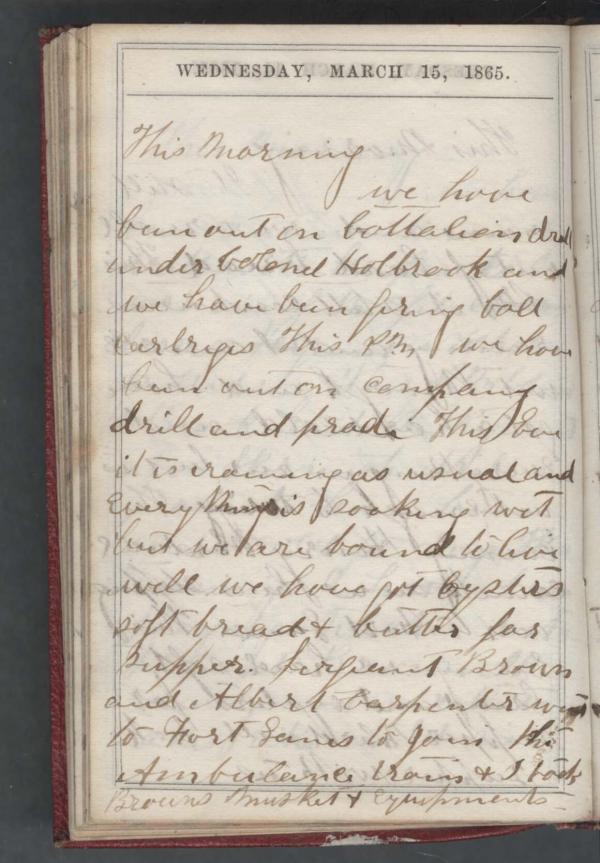 WEDNESDAY, MARCH 15, 1865.
This Morning
we have
bun out on battalion drill
under Colonel Holbrook and
we have been firing ball
Cartreges This P.M. we have
been out on Company
drill and prade This Eve
it is raining as usual and
Every thing is soaking wet
but we are bound to live
well we have got Oysters
soft bread & butter for
supper. Sergeant Brown
and Albert Carpenter went
to Fort Ganes to join the
Ambulance train & I took
Browns musket & Equipments